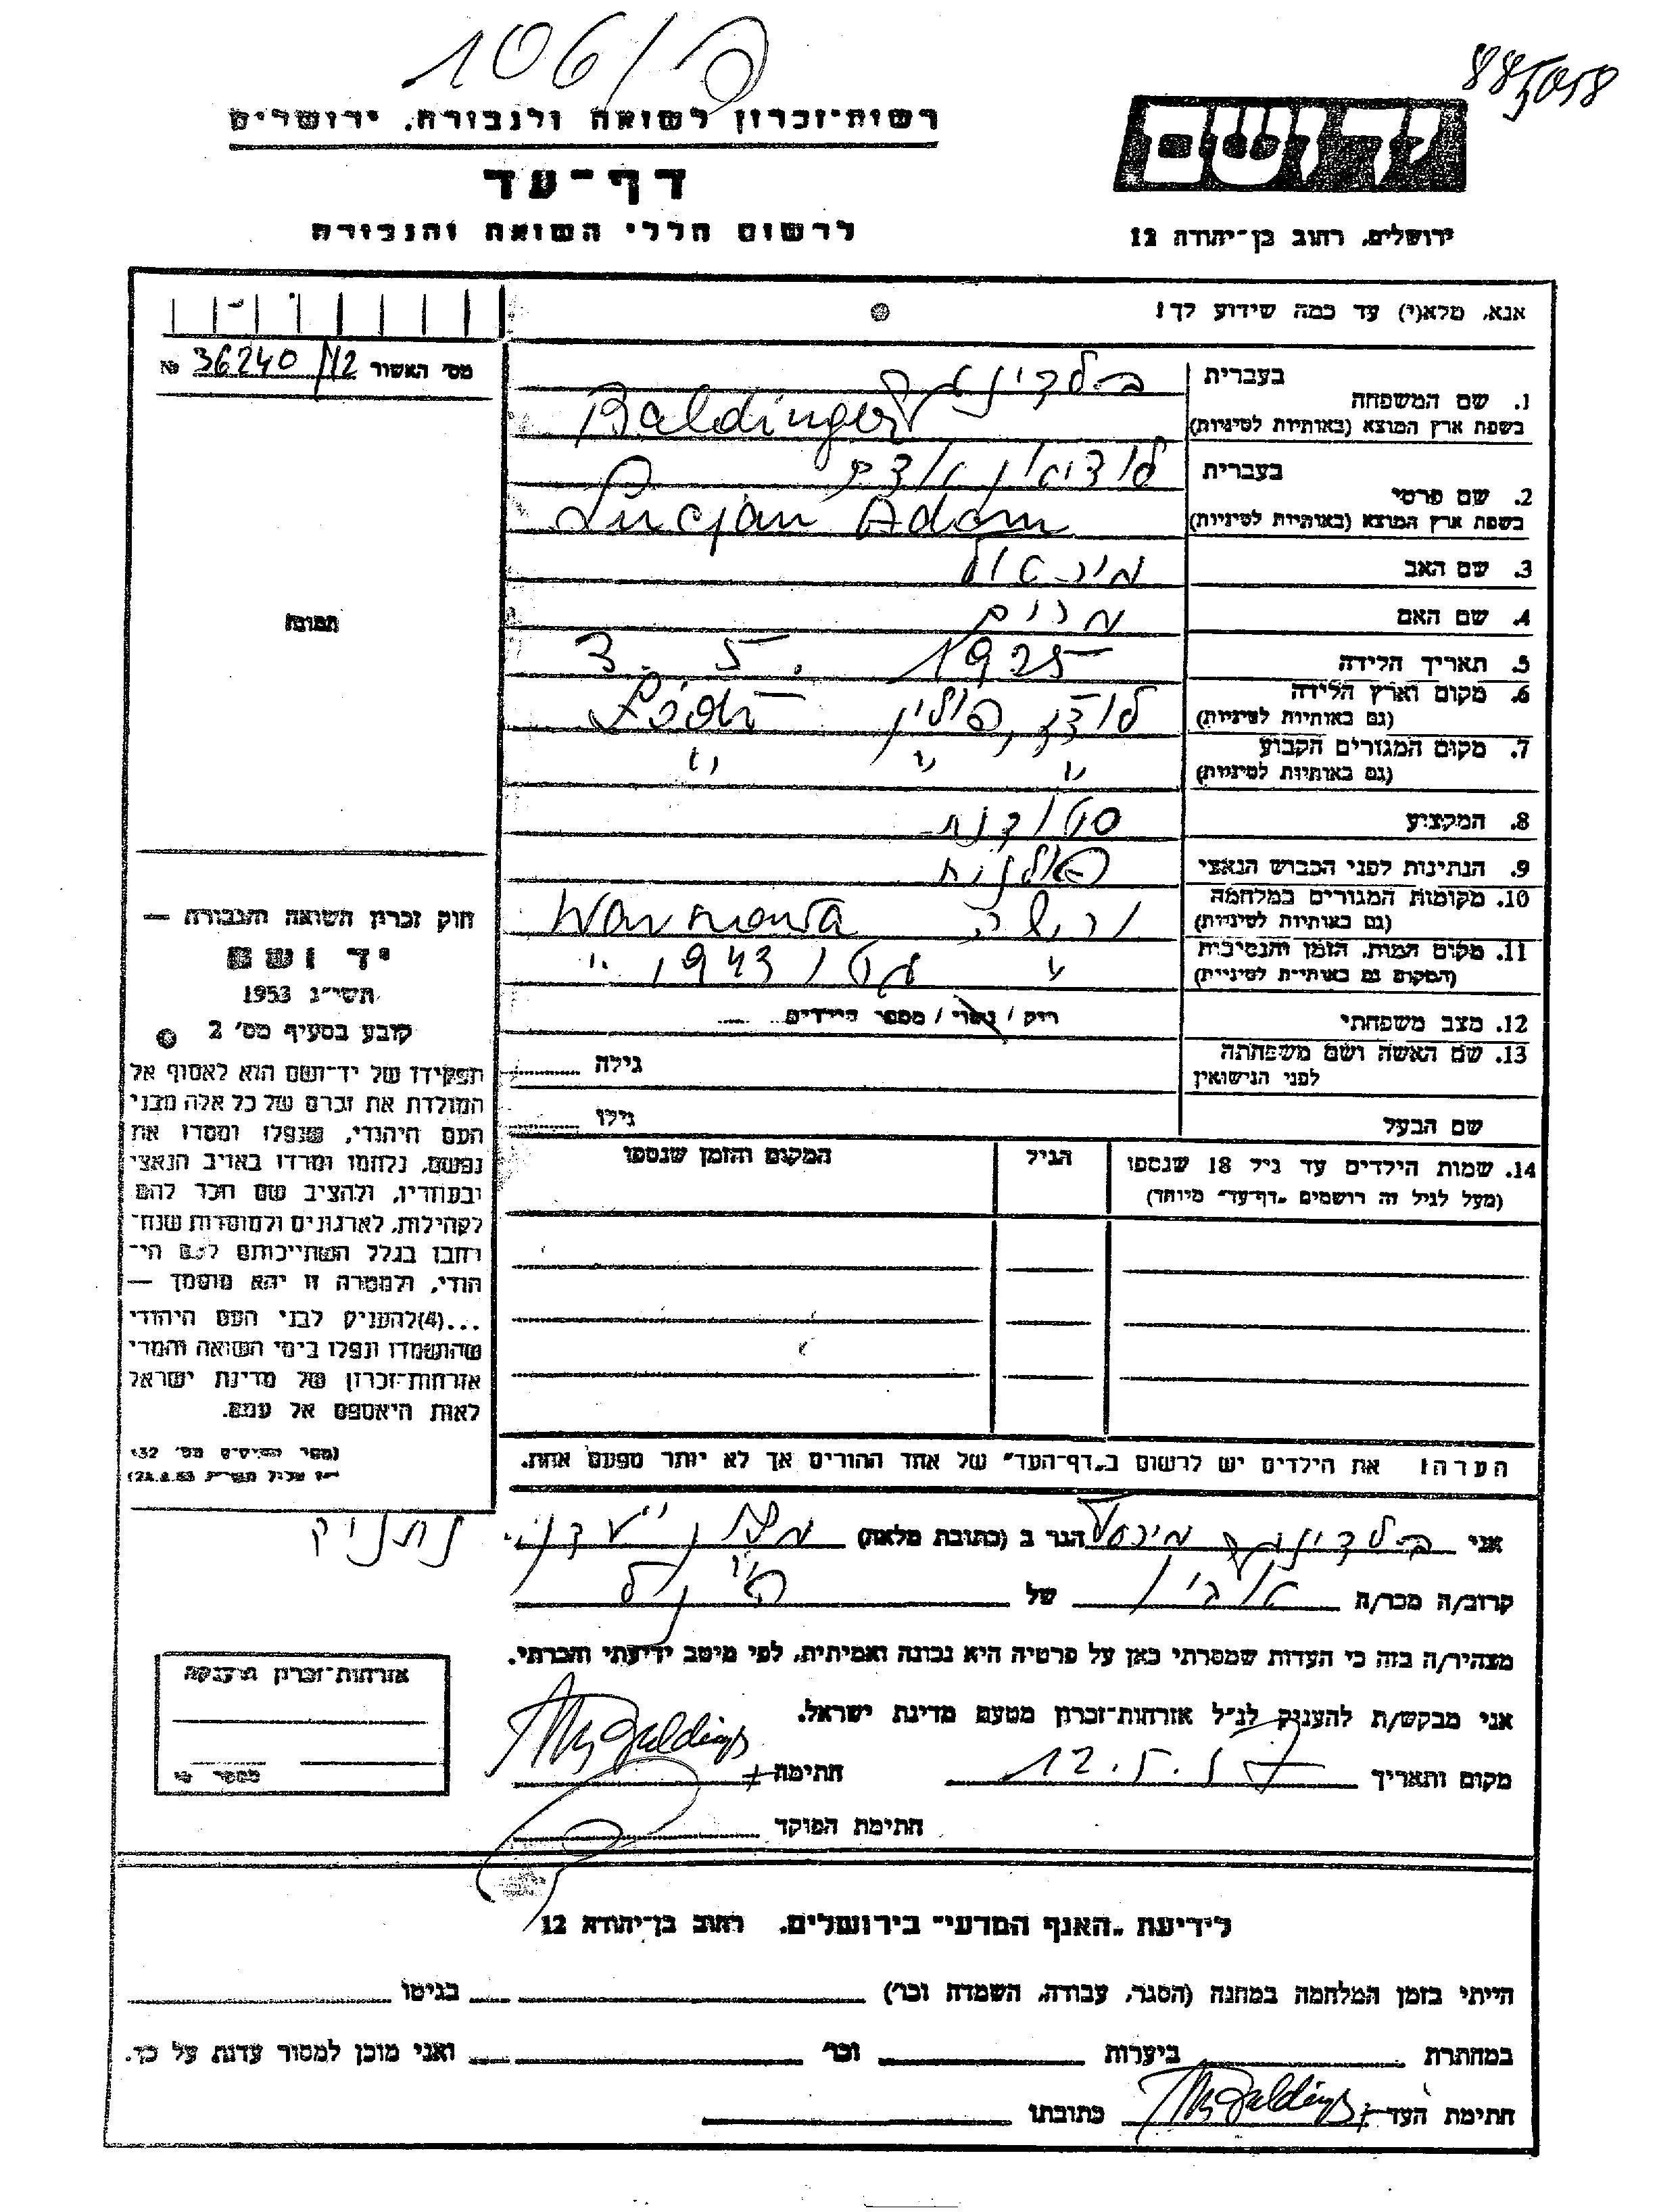 106/פ
885058
רשות־זכרון לשואה ולגבורה, ירושלים
דף־עד
לרשום חללי השואה והגבורה
יד ושם
ירושלים, רחוב בן־יהודה 12
אנא, מלא(י) עד כמה שידוע לך!
מס׳ האשור 36240/12 №
1. שם המשפחה
בעברית בלדינגר
בשפת ארץ המוצא (באותיות לטיניות) Baldinger
2. שם פרטי
בעברית לוציאן אדם
בשפת ארץ המוצא (באותיות לטיניות) Lucjan Adam
3. שם האב
4. שם האם מרים
5. תאריך הלידה 3. 5. 1925
6. מקום וארץ הלידה לודז, פולין Łódź
(גם באותיות לטיניות)
7. מקום המגורים הקבוע " " "
(גם באותיות לטיניות)
8. המקצוע סטודנט
9. הנתינות לפני הכבוש הנאצי פולנית
10. מקומות המגורים במלחמה ורשה Warszawa
(גם באותיות לטיניות)
11. מקום המות, הזמן והנסיבות " גטו 1943 "
(המקום גם באותיות לטיניות)
12. מצב משפחתי רוק / נשוי / מספר הילדים
13. שם האשה ושם משפחתה גילה
לפני הנישואין
שם הבעל גילו
14. שמות הילדים עד גיל 18 שנספו
(מעל לגיל זה רושמים „דף־עד" מיוחד)
הגיל
המקום והזמן שנספו
תמונה
חוק זכרון השואה והגבורה —
יד ושם
תשי״ג 1953
קובע בסעיף מס׳ 2
תפקידו של יד־ושם הוא לאסוף אל
המולדת את זכרם של כל אלה מבני
העם היהודי, שנפלו ומסרו את
נפשם, נלחמו ומרדו באויב הנאצי
ובעוזריו, ולהציב שם וזכר להם
לקהילות, לארגונים ולמוסדות שנח־
רחבו בגלל השתייכותם לעם הי־
הודי, ולמטרה זו יהא מוסמך —
...(4)להעניק לבני העם היהודי
שהושמדו ונפלו בימי השואה והמרי
אזרחות־זכרון של מדינת ישראל
לאות היאספם אל עמם.
הערה! את הילדים יש לרשום ב„דף־העד" של אחד ההורים אך לא יותר מפעם אחת.
אני בלדינגר הגר ב (כתובת מלאה)
קרוב/ה מכר/ה של
מצהיר/ה בזה כי העדות שמסרתי כאן על פרטיה היא נכונה ואמיתית, לפי מיטב ידיעתי והכרתי.
אני מבקש/ת להעניק לנ״ל אזרחות־זכרון מטעם מדינת ישראל.
מקום ותאריך 12.5.57 חתימה
חתימת הפוקד
אזרחות־זכרון הוענקה
מספר
לידיעת „האגף המדעי" בירושלים, רחוב בן־יהודה 12
הייתי בזמן המלחמה במחנה (הסגר, עבודה, השמדה וכו׳) בגיטו
במחתרת ביערות וכו׳ ואני מוכן למסור עדות על כך.
חתימת העד כתובתו